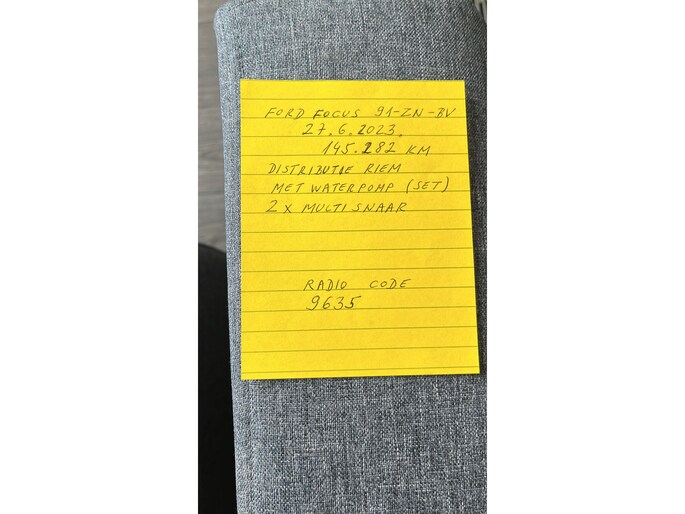 FORD FOCUS 91-ZN-BV
27.6.2023.
145.282 KM
DISTRIBUTIE RIEM
MET WATERPOMP (SET)
2 X MULTI SNAAR
RADIO CODE
9635